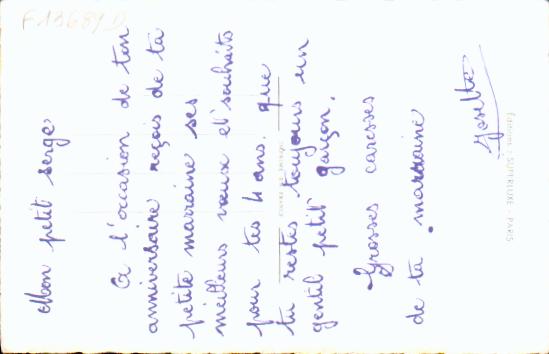 F13689D
Mon petit Serge
A l'occasion de ton
anniversaire reçois de ta
petite marraine ses
meilleurs vœux et souhaits
pour tes 4 ans. que
tu restes toujours un
gentil petit garçon.
Grosses caresses
de ta marraine
Josette
Editions : SUPERLUXE - PARIS